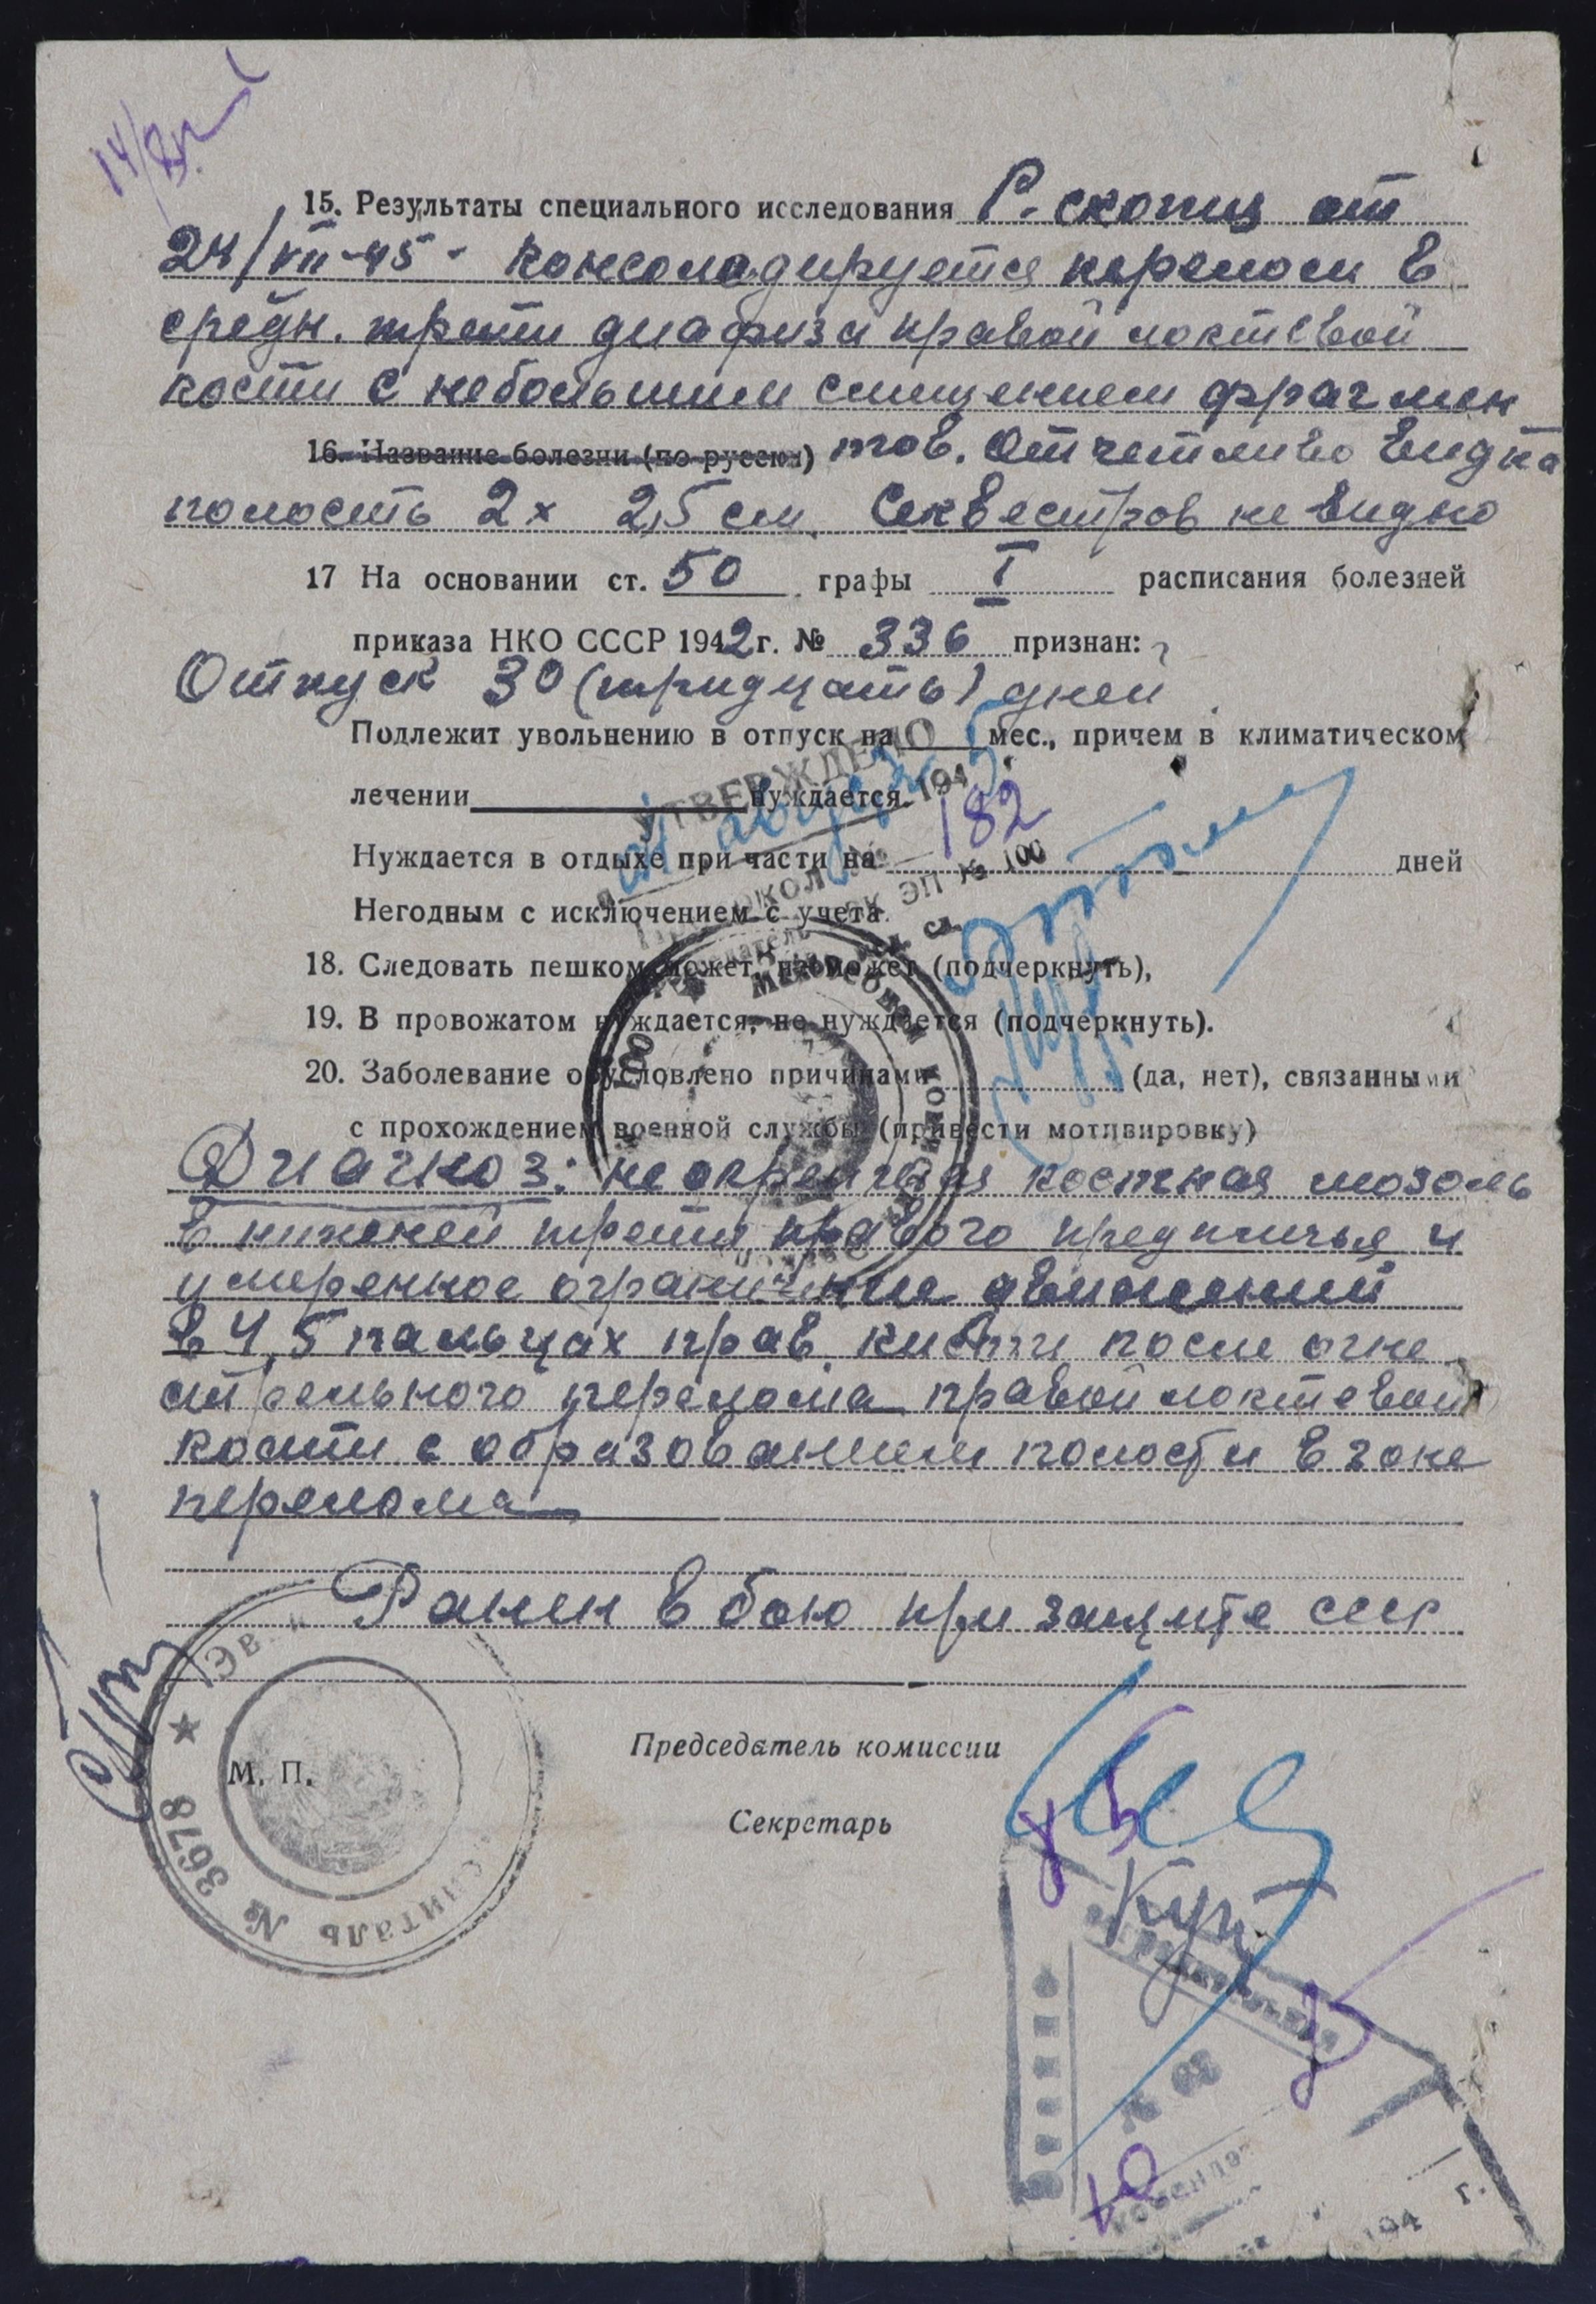 14/8
15. Результаты специального исследования Р-скопия от
24/VII-45 - консолидируется перелом в
средн. трети диафиза правой локтевой
кости с небольшим смещением фрагмен
16. Название болезни (по-русски) тов. Отчетливо видна
полость 2 х 2,5 см. Секвестров не видно
17 На основании ст. 50 графы I расписания болезней
приказа НКО СССР 1942 г. № 336 признан:
Отпуск 30 (тридцать) дней
Подлежит увольнению в отпуск на мес., причем в климатическом
лечении нуждается
УТВЕРЖДЕНО
августа 1945
182
ЭП № 100
Нуждается в отдыхе при части на дней
Негодным с исключением с учета
18. Следовать пешком может, не может (подчеркнуть),
19. В провожатом нуждается, не нуждается (подчеркнуть).
20. Заболевание обусловлено причинами (да, нет), связанными
с прохождением военной службы (привести мотивировку)
Диагноз: неокрепшая костная мозоль
в нижней трети правого предплечья и
умеренное ограничение движений
в 4, 5 пальцах прав. кисти после огне
стрельного перелома правой локтевой
кости с образованием полости в зоне
перелома
Ранен в бою при защите СССР
Председатель комиссии
М. П.
Секретарь
госпиталь № 3678
194 г.